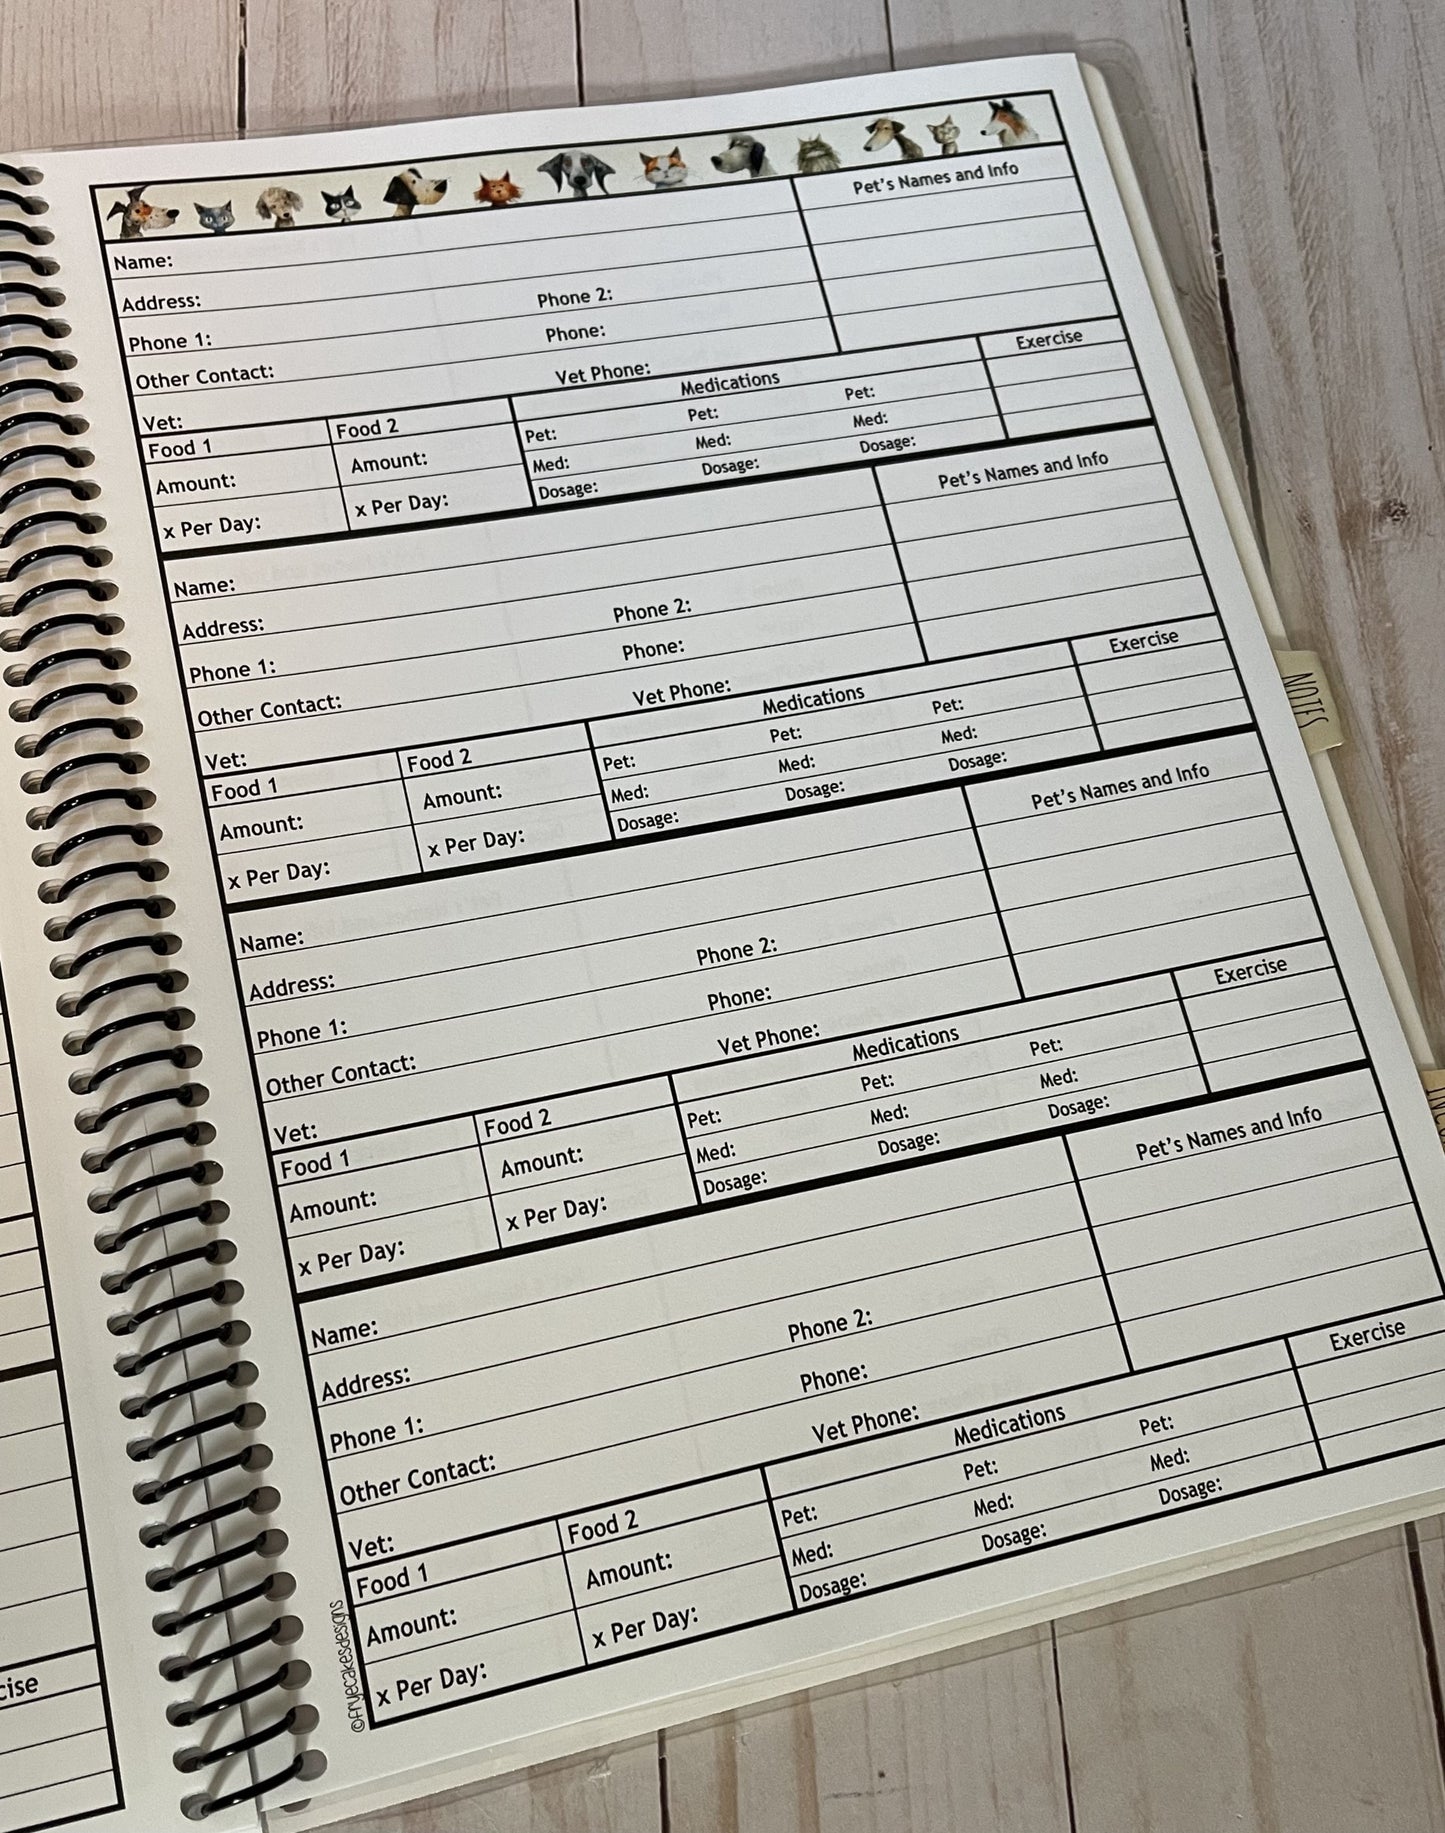 Pet's Names and Info
Name:
Address:
Phone 1: Phone 2:
Other Contact: Phone:
Vet: Vet Phone:
Food 1 Food 2 Medications Exercise
Amount: Amount: Pet: Pet: Pet:
x Per Day: x Per Day: Med: Med: Med:
Dosage: Dosage: Dosage:
Pet's Names and Info
Name:
Address:
Phone 1: Phone 2:
Other Contact: Phone:
Vet: Vet Phone:
Food 1 Food 2 Medications Exercise
Amount: Amount: Pet: Pet: Pet:
x Per Day: x Per Day: Med: Med: Med:
Dosage: Dosage: Dosage:
NOTES
Pet's Names and Info
Name:
Address:
Phone 1: Phone 2:
Other Contact: Phone:
Vet: Vet Phone:
Food 1 Food 2 Medications Exercise
Amount: Amount: Pet: Pet: Pet:
x Per Day: x Per Day: Med: Med: Med:
Dosage: Dosage: Dosage:
Pet's Names and Info
Name:
Address:
Phone 1: Phone 2:
Other Contact: Phone:
Vet: Vet Phone:
Food 1 Food 2 Medications Exercise
Amount: Amount: Pet: Pet: Pet:
x Per Day: x Per Day: Med: Med: Med:
Dosage: Dosage: Dosage:
©fryecakesdesigns
cise